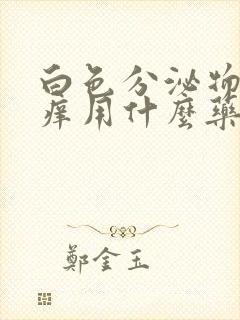 白色分泌物
痒用什麼藥
鄭金玉